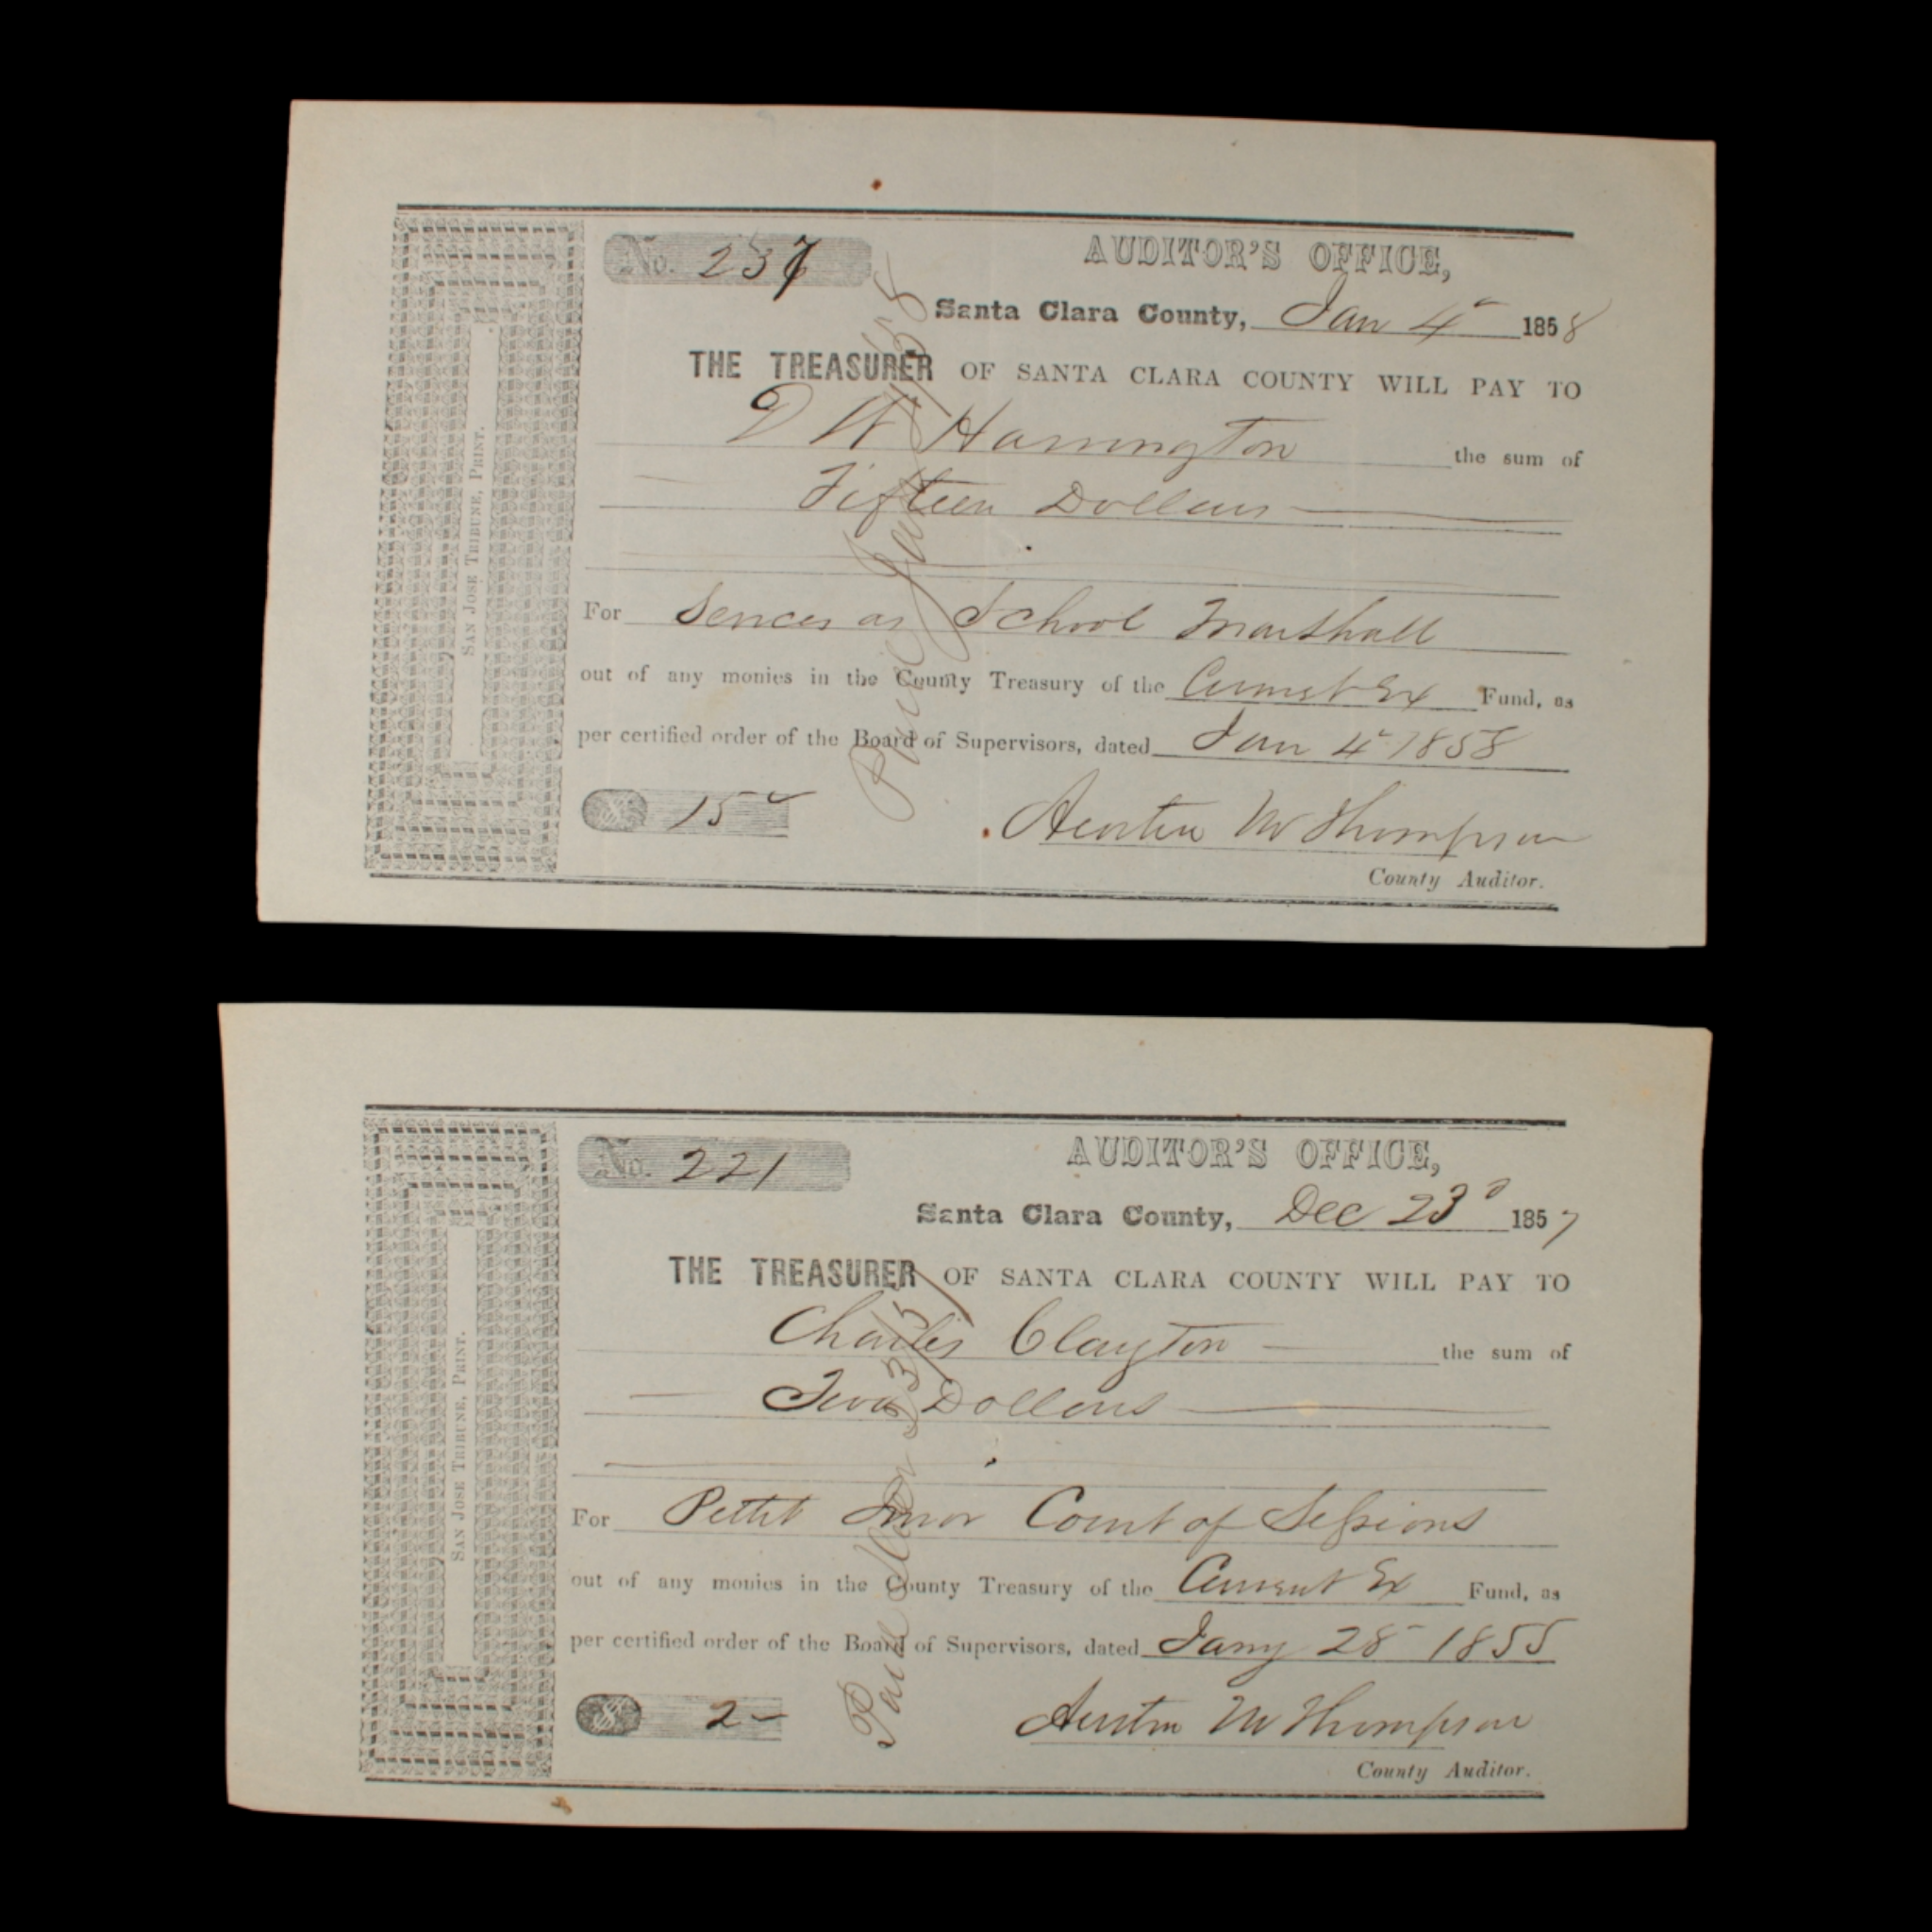 No. 237
AUDITOR'S OFFICE,
Santa Clara County, Jan 4 1858
THE TREASURER OF SANTA CLARA COUNTY WILL PAY TO
D W Harrington the sum of
Fifteen Dollars
For Services as School Marshall
out of any monies in the County Treasury of the Current Ex Fund, as
per certified order of the Board of Supervisors, dated Jan 4 1858
$ 15
Austin M Thompson
County Auditor.
SAN JOSE TRIBUNE, PRINT.
Paid Jan 4/58
No. 221
AUDITOR'S OFFICE,
Santa Clara County, Dec 23d 1857
THE TREASURER OF SANTA CLARA COUNTY WILL PAY TO
Charles Clayton the sum of
Two Dollars
For Pettit Juror Court of Sessions
out of any monies in the County Treasury of the Current Ex Fund, as
per certified order of the Board of Supervisors, dated Jany 28 1855
$ 2
Austin M Thompson
County Auditor.
SAN JOSE TRIBUNE, PRINT.
Paid Dec 23/57